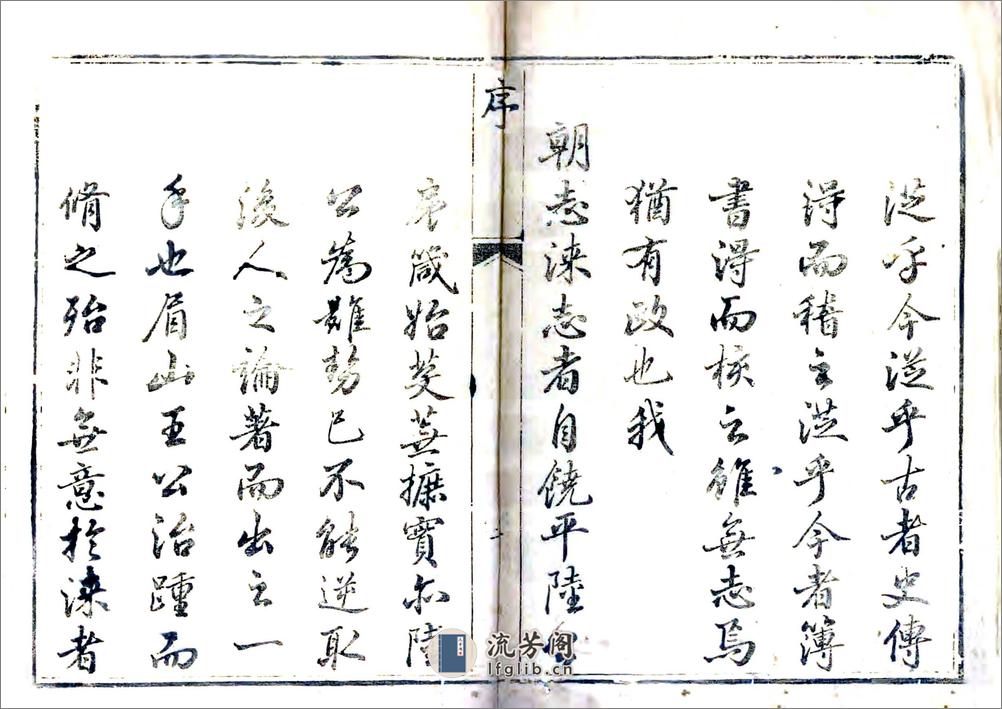 從乎今從乎古者史傳
得而稽之從乎今者簿
書得而核之雖無志焉
猶有政也我
朝志淶志者自饒平陸
序
二
箴始芟蕪摭實尒陸
公為難勢已不能逆取
後人之論著而出之一
手也眉山王公治踵而
脩之殆非無意於淶者
流芳阁
lfglib.cn